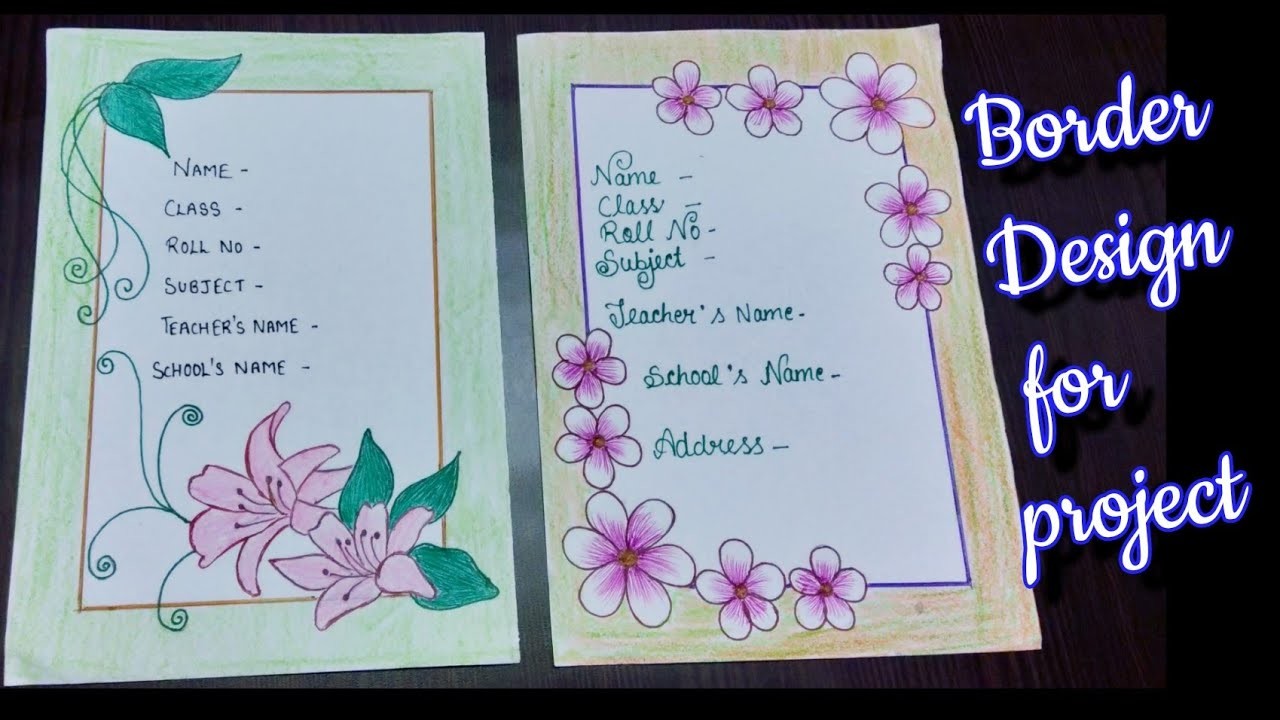 NAME -
CLASS -
ROLL NO -
SUBJECT -
TEACHER'S NAME -
SCHOOL'S NAME -
Name -
Class -
Roll No -
Subject -
Teacher's Name -
School's Name -
Address -
Border
Design
for
project